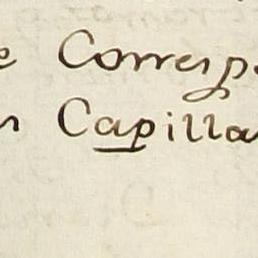 e Corresp
Capilla